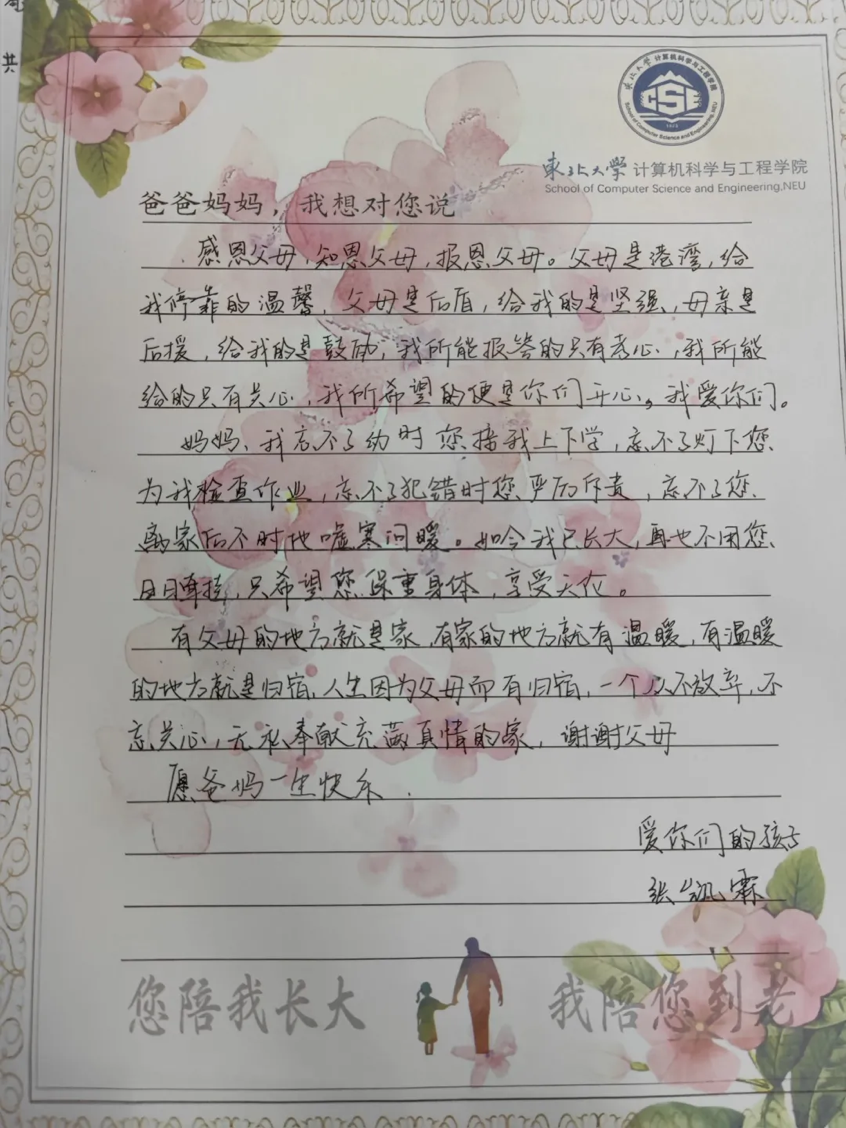 共
东北大学 计算机科学与工程学院
CSE
1923
School of Computer Science and Engineering,NEU
東北大學 计算机科学与工程学院
School of Computer Science and Engineering,NEU
爸爸妈妈，我想对您说
感恩父母，知恩父母，报恩父母。父母是港湾，给
我停靠的温馨，父母是后盾，给我的是坚强，母亲是
后援，给我的是鼓励，我所能报答的只有孝心，我所能
给的只有关心，我所希望的便是你们开心，我爱你们。
妈妈、我忘不了幼时您接我上下学，忘不了灯下您
为我检查作业，忘不了犯错时您严厉斥责，忘不了您
离家后不时地嘘寒问暖。如今我已长大，再也不用您
日日牵挂，只希望您保重身体，享受天伦。
有父母的地方就是家，有家的地方就有温暖，有温暖
的地方就是归宿，人生因为父母而有归宿，一个从不放弃，不
忘关心，无私奉献充满真情的家，谢谢父母
愿爸妈一生快乐.
爱你们的孩子
张凯霖
您陪我长大 我陪您到老